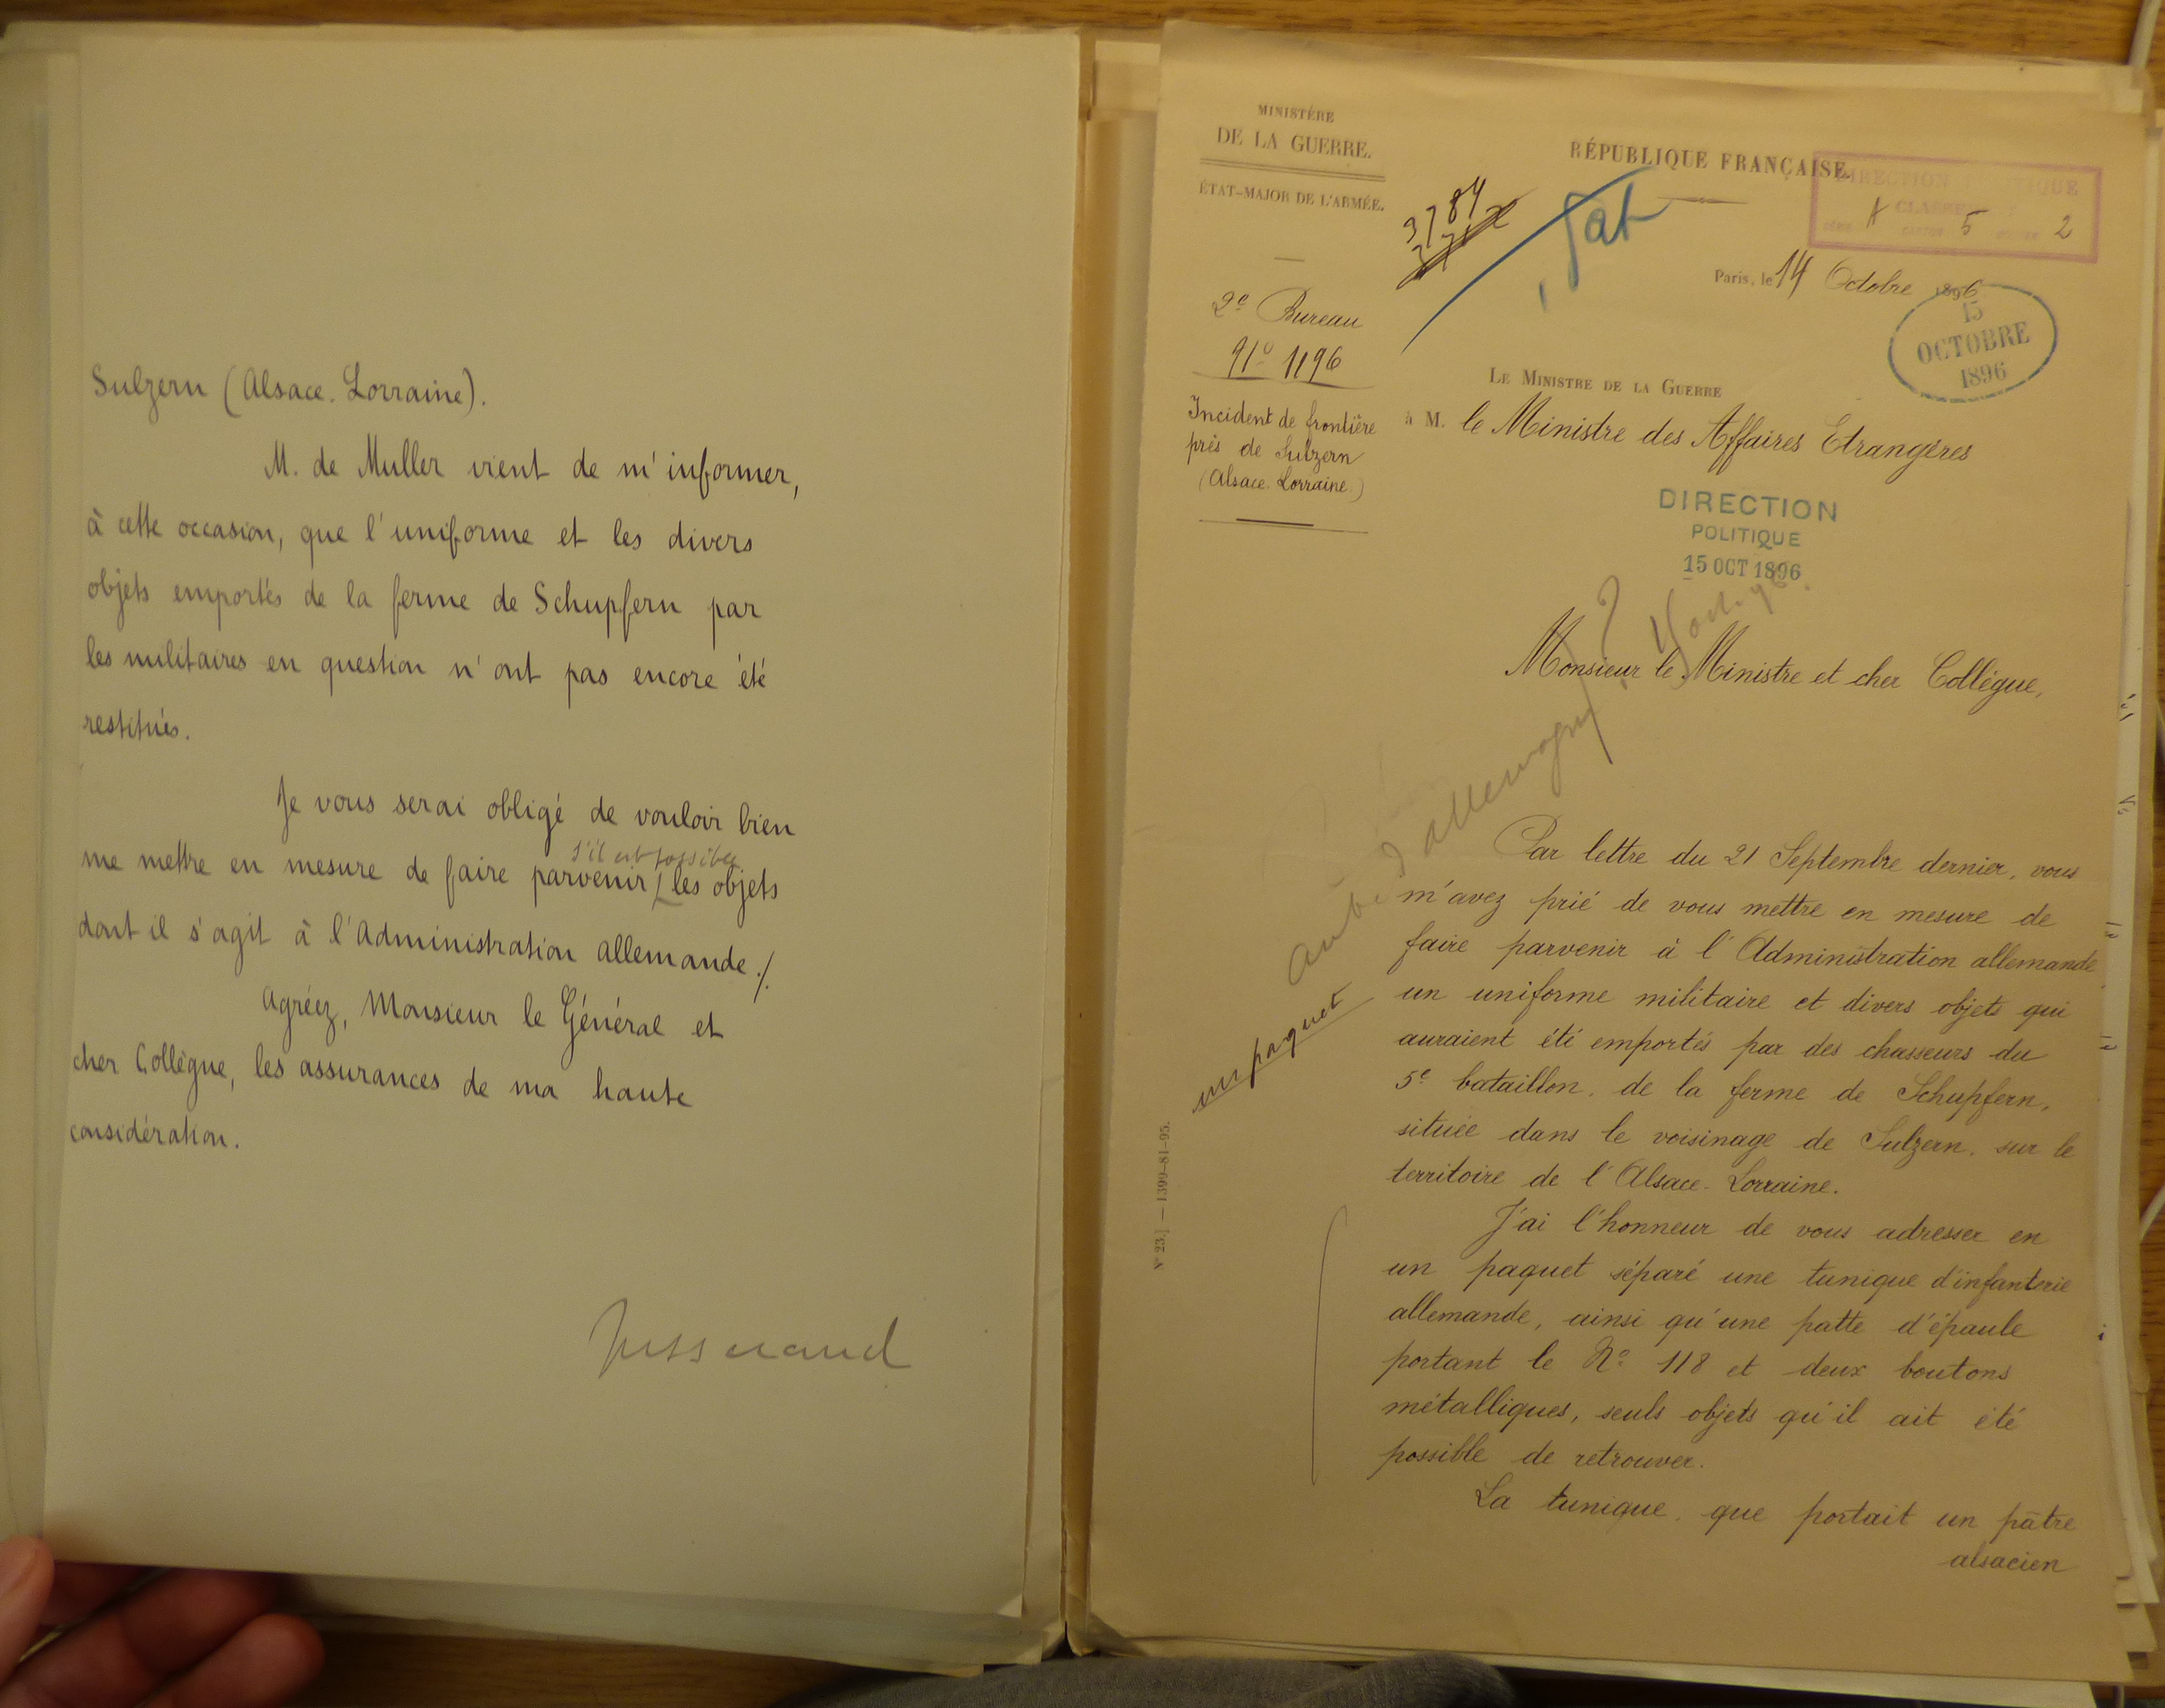 Sulzern (Alsace. Lorraine).
M. de Muller vient de m'informer,
à cette occasion, que l'uniforme et les divers
objets emportés de la ferme de Schupfern par
les militaires en question n'ont pas encore été
restitués.
Je vous serai obligé de vouloir bien
s'il est possible
me mettre en mesure de faire parvenir les objets
dont il s'agit à l'Administration allemande./.
Agréez, Monsieur le Général et
cher Collègue, les assurances de ma haute
considération.
Jusserand
MINISTÈRE
DE LA GUERRE.
ÉTAT-MAJOR DE L'ARMÉE.
2e Bureau
No 1196
Incident de frontière
près de Sulzern
(Alsace. Lorraine.)
3784
RÉPUBLIQUE FRANÇAISE.
DIRECTION POLITIQUE
CLASSEMENT
SÉRIE A CARTON 5 DOSSIER 2
Paris, le 14 Octobre 1896
15
OCTOBRE
1896
LE MINISTRE DE LA GUERRE
à M. le Ministre des Affaires Etrangères
DIRECTION
POLITIQUE
15 OCT 1896
Monsieur le Ministre et cher Collègue,
d'allemagne ?
un paquet
Par lettre du 21 Septembre dernier, vous
m'avez prié de vous mettre en mesure de
faire parvenir à l'Administration allemande
un uniforme militaire et divers objets qui
auraient été emportés par des chasseurs du
5e bataillon, de la ferme de Schupfern,
située dans le voisinage de Sulzern, sur le
territoire de l'Alsace-Lorraine.
J'ai l'honneur de vous adresser en
un paquet séparé une tunique d'infanterie
allemande, ainsi qu'une patte d'épaule
portant le No 118 et deux boutons
métalliques, seuls objets qu'il ait été
possible de retrouver.
La tunique, que portait un pâtre
alsacien
N° 23.] — 1399-81-95.